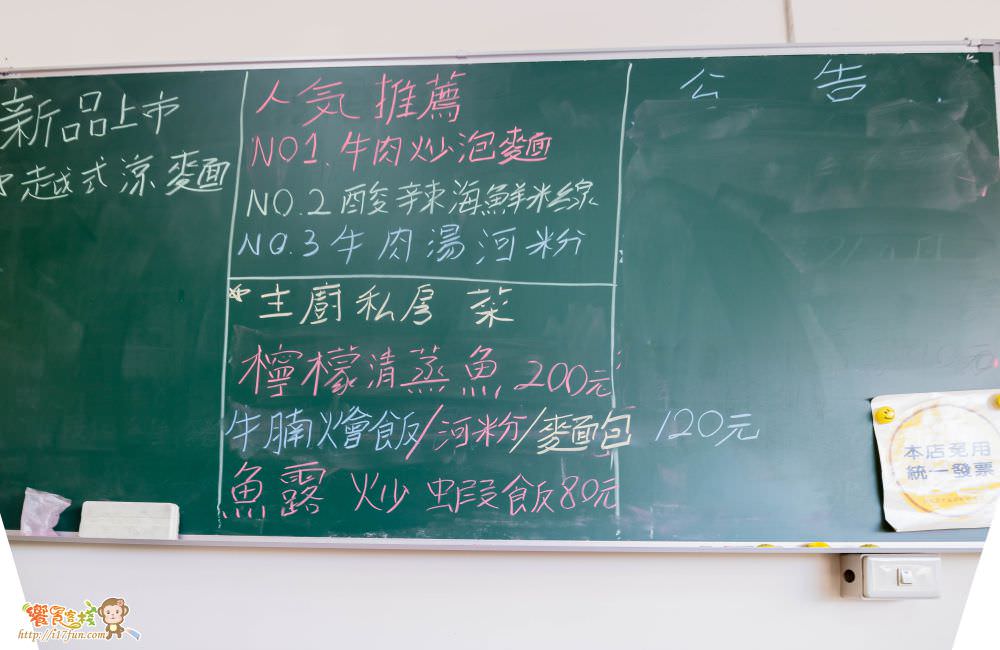 新品上市
越式涼麵
人気推薦
NO1.牛肉炒泡麵
NO.2酸辣海鮮米線
NO.3牛肉湯河粉
主廚私房菜
檸檬清蒸魚 200元
牛腩燴飯/河粉/麵包 120元
魚露炒蝦飯80元
公告
本店免用
統一發票
饗賓客棧
http://i17fun.com/